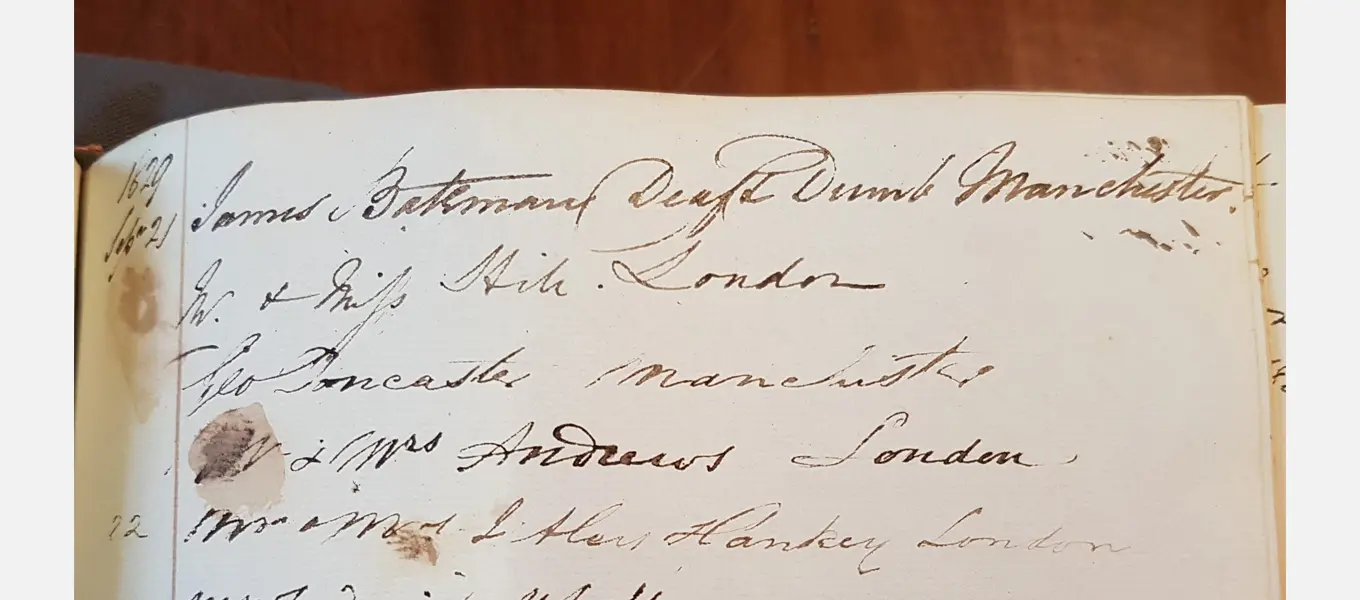 1829
Septr 21 James Bateman Deaf & Dumb Manchester.
Mr. & Miss Hill. London
Geo Doncaster Manchester
& Mrs Andrews London
22 Mr & Mrs J Alexr Hankey London